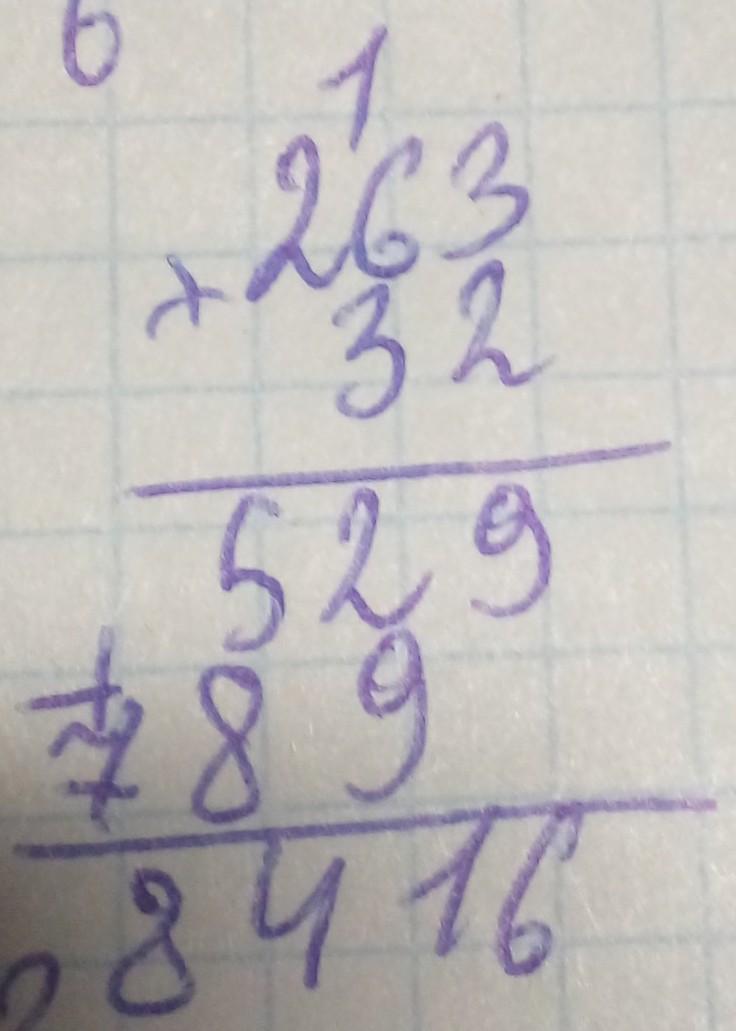 6
1
263
× 32
529
+ 789
8416